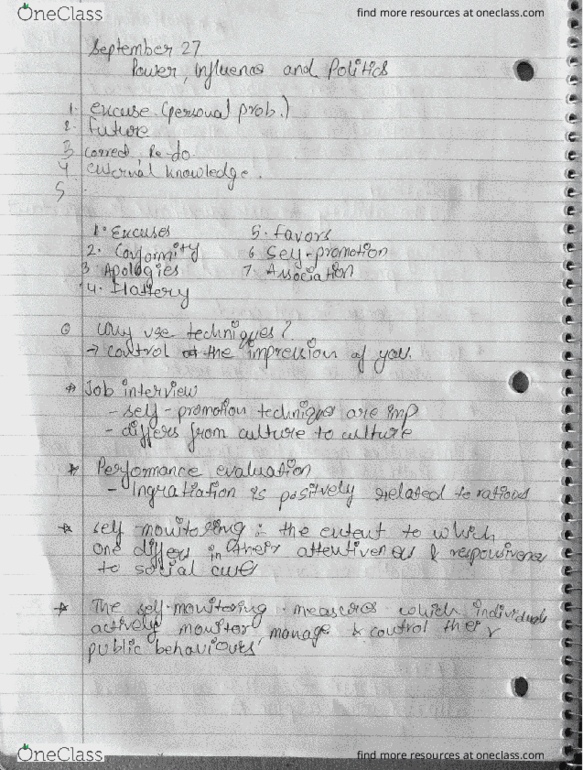 OneClass
find more resources at oneclass.com
September 27
Power, Influence and Politics
1. excuse (personal prob.)
2. future
3 correct, Re-do
4 external knowledge.
5 .
1. Excuses
2. Conformity
3 Apologies
4. Flattery
5. favors
6 Self-promotion
7. Association
Why use techniques?
→ control of the impression of you.
Job interview
- self-promotion techniques are imp
- differs from culture to culture
Performance evaluation
- Ingratiation is positively related to ratings
self monitoring : the extent to which
one differs in their attentiveness & responsiveness
to social cues
The self-monitoring measures which individuals
actively monitor, manage & control their
public behaviours
OneClass
find more resources at oneclass.com